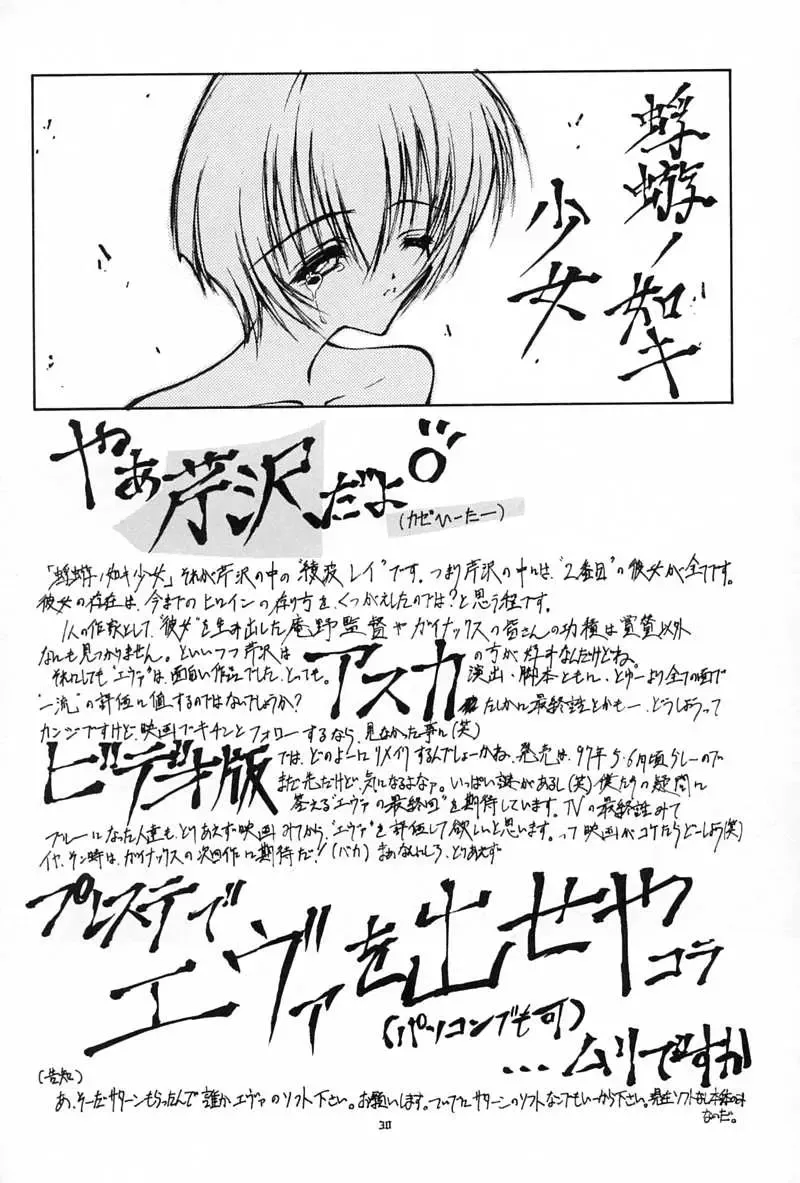 蜉蝣ノ如キ
少女
やあ芹沢だよ
(カゼひーたー)
「蜉蝣ノ如キ少女」それが芹沢の中の“綾波 レイ”です。つまり芹沢の中には“2番目”の彼女が全てです。
彼女の存在は、今までのヒロインの在り方を、くつがえしたのでは?と思う程です。
1人の作家として、“彼女”を生み出した庵野監督やガイナックスの皆さんの功積は賞賛以外
なんも見つかりません。といいつつ芹沢は アスカ の方が好きなんだけどね。
それにしても“エヴァ”は、面白い作品でした、とっても。演出・脚本ともに、とゆーより全ての面で
“一流”の評価に値するのではないでしょうか? たしかに最終話とかも…、どうしようって
カンジですけど、映画でキチンとフォローするなら、見なかった事に(笑)
ビデオ版 では、どのよーにリメイクするんでしょーかね、発売は、97年5・6月頃らしーので
まだ先だけど、気になるよなァ。いっぱい謎があるし(笑) 僕たちの疑問に
答える“エヴァの最終回”を期待しています。TVの最終話みて
ブルーになった人達も、とりあえず映画みてから、“エヴァ”を評価して欲しいと思います。って映画がコケたらどーしよう(笑)
イヤ、そん時は、ガイナックスの次回作に期待だ!(バカ) まあなんにしろ、とりあえず
プレステで
エヴァを出せや
コラ
(パソコンでも可)
...ムリですか
(告知)
あ、そーだサターンもらったんで誰かエヴァのソフト下さい。お願いします。ついでにサターンのソフトなんでもいーから下さい。現在ソフトなし本体のみ
なのだ。
30